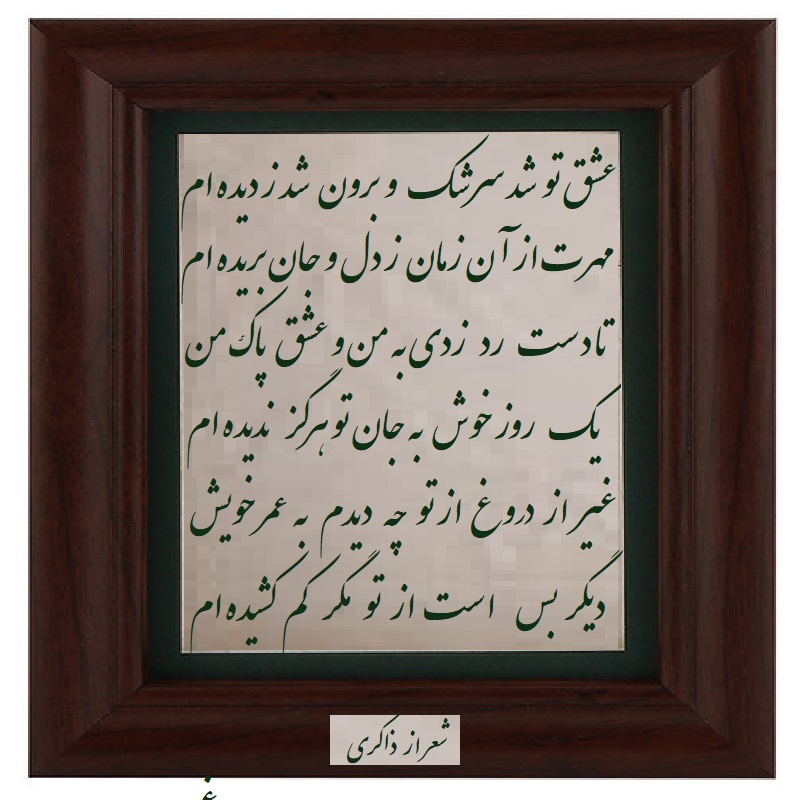 عشق تو شد سرشک و برون شد ز دیده ام
مهرت از آن زمان ز دل و جان بریده ام
تا دست رد زدی به من و عشق پاک من
یک روز خوش به جان تو هرگز ندیده ام
غیر از دروغ از تو چه دیدم به عمر خویش
دیگر بس است از تو مگر کم کشیده ام
شعر از ذاکری